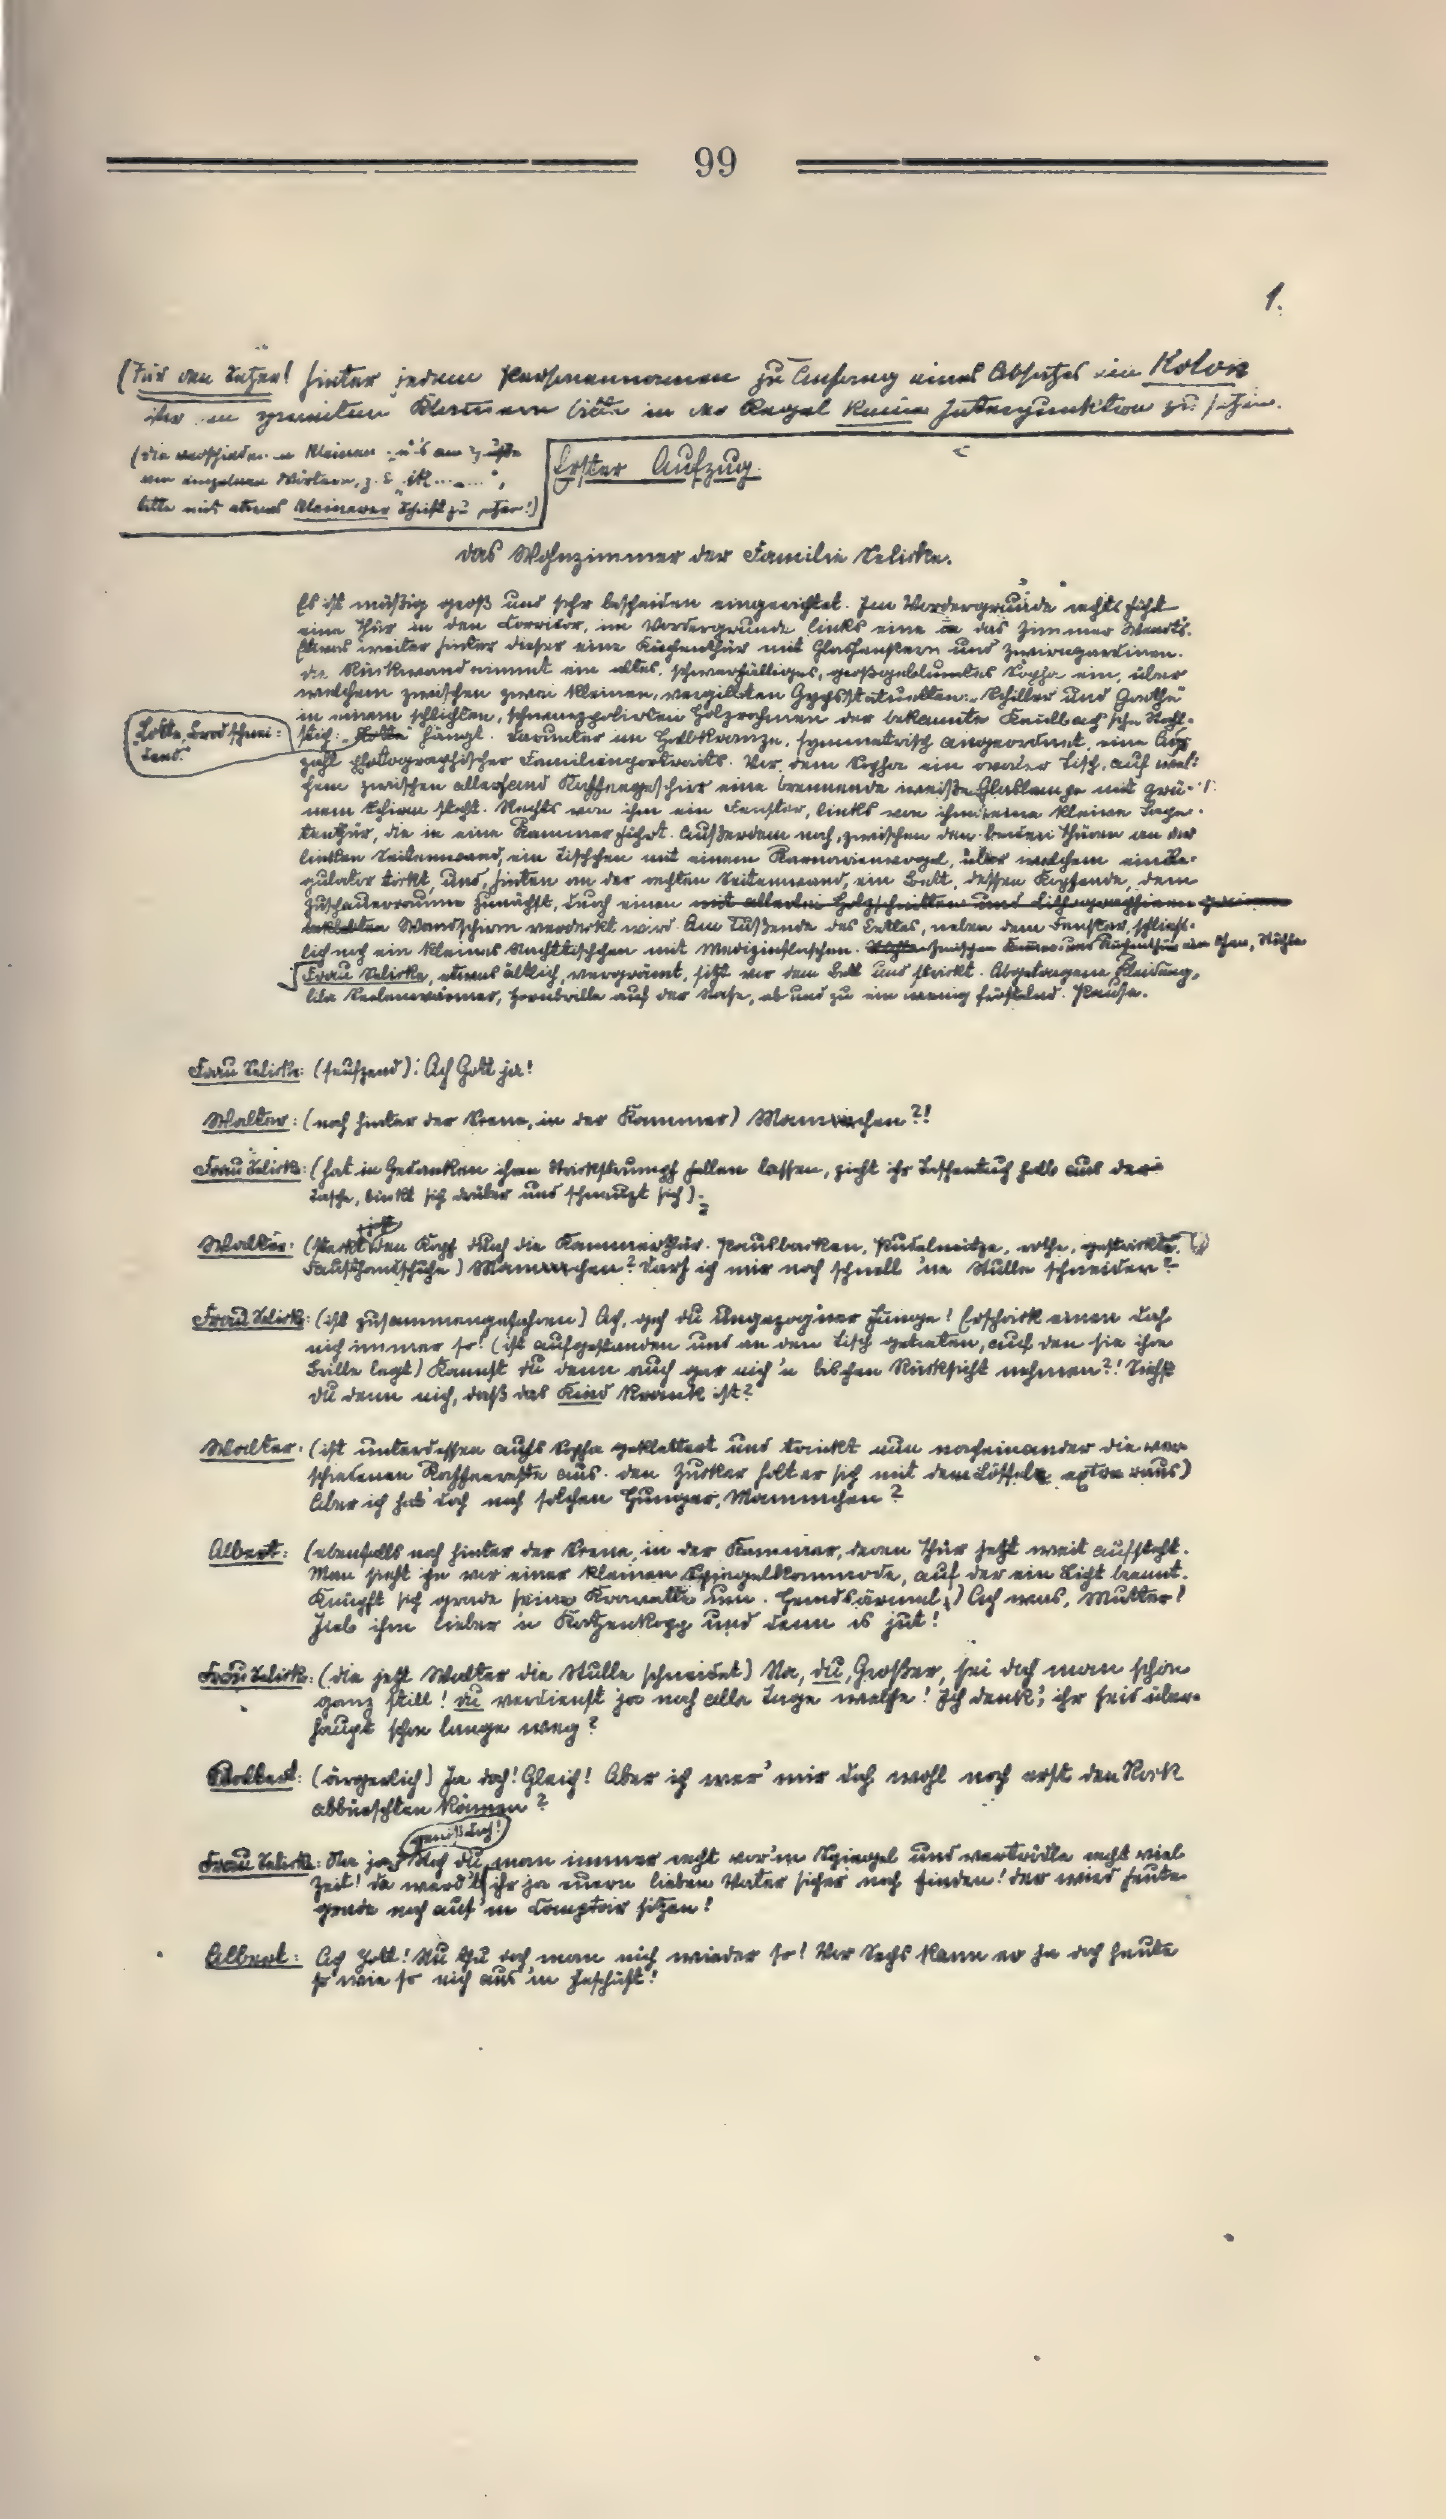 99
1.
(Für den Setzer! Hinter jedem Personennamen zu Anfang eines Absatzes ein Kolon
bitte in der Regel keine Interpunktion zu setzen.
(die verschiedenen kleinen
von einzelnen Wörtern, z. B.
bitte mit etwas kleinerer Schrift zu setzen!)
Erster Aufzug.
Das Wohnzimmer der Familie Selicke.
Es ist mäßig groß und sehr bescheiden eingerichtet. Im Vordergrunde rechts führt
eine Thür in den Corridor, im Vordergrunde links eine in das Zimmer Wendt's.
Etwas weiter hinter dieser eine Küchenthür mit Glasfenstern und Zwirngardinen.
Die Rückwand nimmt ein altes, schwerfälliges, großgeblumtes Sopha ein, über
welchem zwischen zwei kleinen, vergilbten Gypsstatuetten „Schiller und Goethe"
in einem schlichten, schwarzpolirten Holzrahmen der bekannte Kaulbach'sche Stahl-
„Lotte, Brodschnei-
dend."
stich: „Lotte" hängt. Darunter im Halbkranze, symmetrisch angeordnet, eine An-
zahl photographischer Familienportraits. Vor dem Sopha ein ovaler Tisch, auf wel-
chem zwischen allerhand Kaffeegeschirr eine brennende weiße Glaslampe mit grü-
nem Schirm steht. Rechts von ihm ein Fenster, links von ihm eine kleine Tape-
tenthür, die in eine Kammer führt. Außerdem noch, zwischen den beiden Thüren an der
linken Seitenwand, ein Tischchen mit einem Kanarienvogel, über welchem ein Re-
gulator tickt, und, hinten an der rechten Seitenwand, ein Bett, dessen Kopfende, dem
Zuschauerraume zunächst, durch einen mit allerlei Holzschnitten und Lithographieen
beklebten Wandschirm verdeckt wird. Am Fußende des Bettes, neben dem Fenster, schließ-
lich noch ein kleines Nachttischchen mit Medizinflaschen. Zwischen Kammer- und Küchenthür ein Ofen, Stühle
Frau Selicke, etwas ältlich, vergrämt, sitzt vor dem Bett und strickt. Abgetragene Kleidung,
lila Seelenwärmer, Hornbrille auf der Nase, ab und zu ein wenig fröstelnd. Pause.
Frau Selicke: (seufzend): Ach Gott ja!
Walter: (noch hinter der Scene, in der Kammer) Mamchen?!
Frau Selicke: (hat in Gedanken ihren Strickstrumpf fallen lassen, zieht ihr Taschentuch halb aus der
Tasche, bückt sich drüber und schneuzt sich).
Walter: (steckt den Kopf durch die Kammerthür. Pausbacken, Pudelmütze, rothe, gestrickte
Fausthandschuhe) Mamchen? Darf ich mir noch schnell 'ne Stulle schneiden?
Frau Selicke: (ist zusammengefahren) Ach, geh du ungezogner Junge! Erschrick einen doch
nich immer so! (ist aufgestanden und an den Tisch getreten, auf den sie ihre
Brille legt) Kannst du denn auch gar nich 'n bischen Rücksicht nehmen?! Siehst
du denn nich, daß das Kind krank ist?
Walter: (ist unterdessen aufs Sopha geklettert und trinkt nun nacheinander die ver-
schiedenen Kaffeereste aus. Den Zucker holt er sich mit dem Löffel extra raus)
Aber ich hab' doch noch solchen Hunger, Mamchen?
Albert: (ebenfalls noch hinter der Scene, in der Kammer, deren Thür jetzt weit aufsteht.
Man sieht ihn vor einer kleinen Spiegelkommode, auf der ein Licht brennt.
Knüpft sich grade seine Kravatte um. Hemdsärmel.) Ach was, Mutter!
Jieb ihm lieber 'n Katzenkopp und denn is jut!
Frau Selicke: (die jetzt Walter die Stulle schneidet) Na, du, Großer, sei doch man schon
ganz still! Du verdienst ja noch alle Tage welche! Ich denk', ihr seid über-
haupt schon lange weg?
Albert: (ärgerlich) Ja doch! Gleich! Aber ich wer' mir doch wohl noch erst den Rock
abbürschten können?
gewiß doch!
Frau Selicke: Na ja, Steh du man immer recht vor'm Spiegel und vertrödle recht viel
Zeit! Da werd't ihr ja euern lieben Vater sicher noch finden! Der wird heute
grade noch auf'm Comptoir sitzen!
Albert: Ach Jott! Nu thu doch man nich wieder so! Vor Sechs kann er ja doch heute
so wie so nich aus'm Jeschäft!